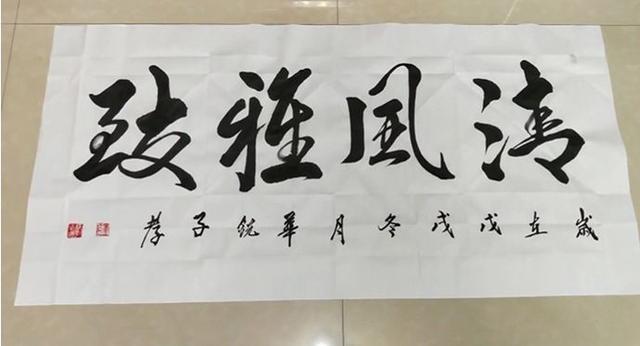 清風雅致
歲在戊戌冬月華子孝